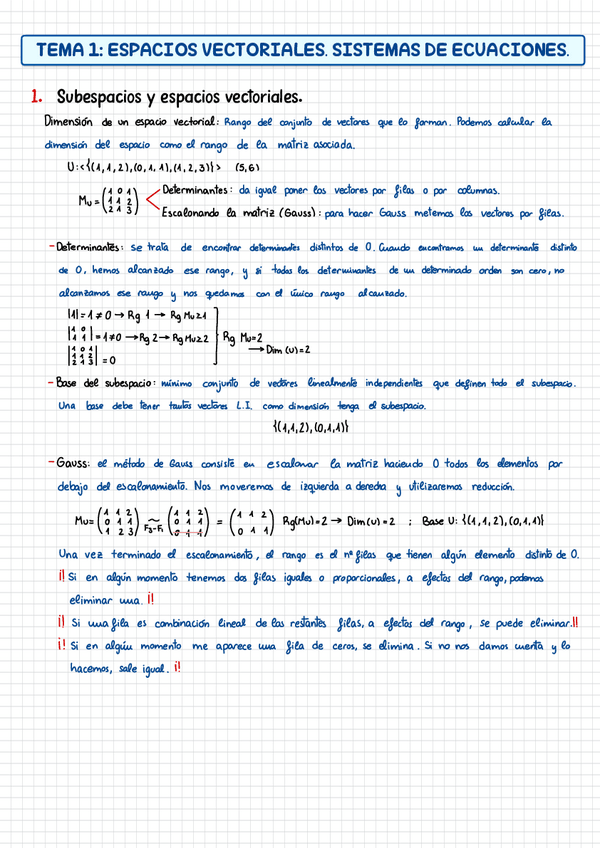 TEMA 1: ESPACIOS VECTORIALES. SISTEMAS DE ECUACIONES.
1. Subespacios y espacios vectoriales.
Dimensión de un espacio vectorial: Rango del conjunto de vectores que lo forman. Podemos calcular la
dimensión del espacio como el rango de la matriz asociada.
U:<{(1,1,2),(0,1,1),(1,2,3)}> (5,6)
Mu = (1 0 1 / 1 1 2 / 2 1 3)
Determinantes: da igual poner los vectores por filas o por columnas.
Escalonando la matriz (Gauss): para hacer Gauss metemos los vectores por filas.
- Determinantes: se trata de encontrar determinantes distintos de 0. Cuando encontramos un determinante distinto
de 0, hemos alcanzado ese rango, y si todos los determinantes de un determinado orden son cero, no
alcanzamos ese rango y nos quedamos con el único rango alcanzado.
|1| = 1 ≠ 0 → Rg 1 → Rg Mu≥1
|1 0 / 1 1| = 1≠0 → Rg 2 → Rg Mu≥2
|1 0 1 / 1 1 2 / 2 1 3| = 0
Rg Mu=2
→ Dim (U)=2
- Base del subespacio: mínimo conjunto de vectores linealmente independientes que definen todo el subespacio.
Una base debe tener tantos vectores L.I. como dimensión tenga el subespacio.
{(1,1,2),(0,1,1)}
- Gauss: el método de Gauss consiste en escalonar la matriz haciendo 0 todos los elementos por
debajo del escalonamiento. Nos moveremos de izquierda a derecha y utilizaremos reducción.
Mu= (1 1 2 / 0 1 1 / 1 2 3) ~ F3-F1 (1 1 2 / 0 1 1 / 0 1 1) = (1 1 2 / 0 1 1) Rg(Mu)=2 → Dim(U)=2 ; Base U: {(1,1,2),(0,1,1)}
Una vez terminado el escalonamiento, el rango es el nº filas que tienen algún elemento distinto de 0.
¡! Si en algún momento tenemos dos filas iguales o proporcionales, a efectos del rango, podemos
eliminar una. ¡!
¡! Si una fila es combinación lineal de las restantes filas, a efectos del rango, se puede eliminar.¡!
¡! Si en algún momento me aparece una fila de ceros, se elimina. Si no nos damos cuenta y lo
hacemos, sale igual. ¡!